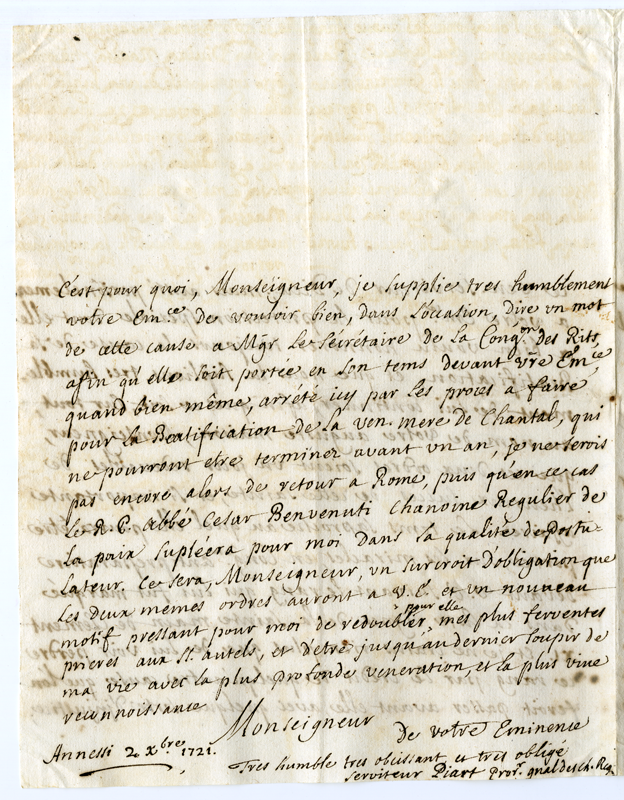 C'est pour quoi, Monseigneur, je supplie tres humblement
votre Em.ce de vouloir bien, dans l'occasion, dire vn mot
de cette cause a Mgr le Sécrétaire de la Cong.on des Rits,
afin qu'elle soit portée en son tems devant vre Em.ce
quand bien même, arrété icy par les procés a faire
pour la Beatification de la ven. mere de Chantal, qui
ne pourront etre terminez avant vn an, je ne serois
pas encore alors de retour a Rome, puis qu'en ce cas
le R. P. Abbé Cesar Benvenuti Chanoine Regulier de
la paix supléera pour moi dans la qualité de Postu-
lateur. Ce sera, Monseigneur, un surcroit d'obligation que
les deux mêmes ordres auront a V. E. et vn nouveau
motif pressant pour moi de redoubler pour elle mes plus ferventes
prieres aux St. autels, et d'etre jusqu'au dernier soupir de
ma vie avec la plus profonde veneration, et la plus vive
reconnoissance
Monseigneur
de votre Eminence
Annessi 2 xbre 1721.
Tres humble tres obeissant et tres obligé
serviteur Piart Pror. gnal des Ch. Reg.